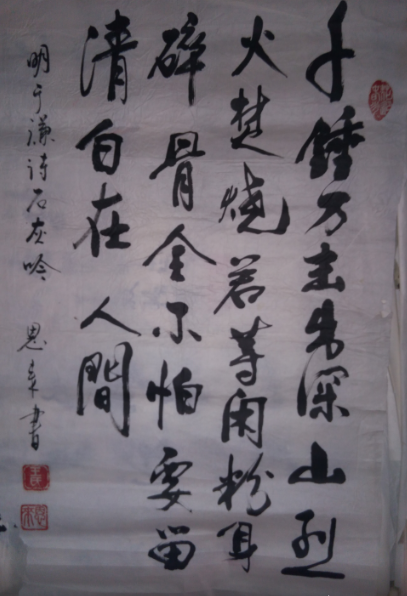 千錘万击出深山烈
火焚燒若等闲粉身
碎骨全不怕要留
清白在人間
明于谦诗石灰吟
書